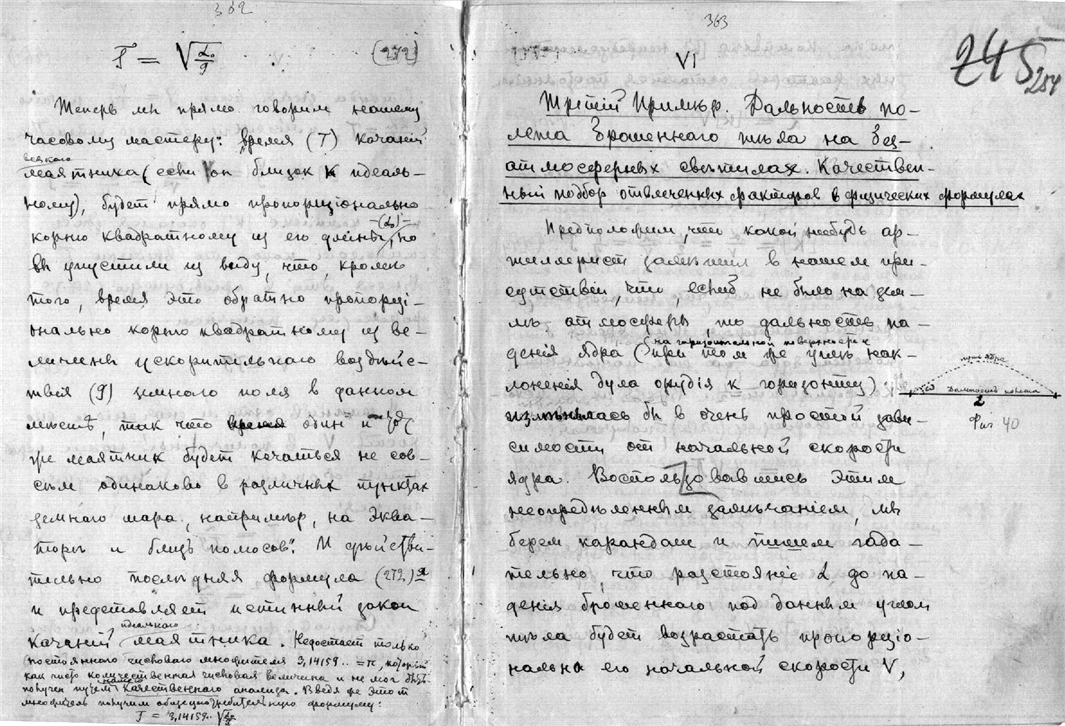 362
T = √L₀/g (272)
Теперь мы прямо говорим нашему
часовому мастеру: время (T) качаний
всякого
маятника (если он близок к идеаль-
ному), будет прямо пропорціонально
-(L₀)-
корню квадратному из его длины, но
вы упустили из виду, что, кроме
того, время это обратно пропорці-
онально корню квадратному из ве-
личины ускорительнаго воздѣйс-
твія (g) земного поля в данном
мѣстѣ, так что один и тот
же маятник будет качаться не сов-
сѣм одинаково в различных пунктах
земного шара, например, на эква-
торѣ и близь полюсов. И дѣйстви-
тельно послѣдняя формула (272)
и представляет истинный закон
идеального
качаний маятника. Недостает только
постоянного числового множителя 3,14159.. = π, который
как чисто количественная числовая величина и не мог быть
нашего
получен путем качественного анализа. Введя же этот
множитель получим общеупотребительную формулу:
T = 3,14159.. √L₀/g
363
VI
245
254
Третій Примѣр. Дальность по-
лета брошеннаго тѣла на без-
атмосферных свѣтилах. Качествен-
ный подбор отвлеченных факторов в физических формулах
Предположим, что какой нибудь ар-
тиллерист замѣтил в нашем при-
сутствіи, что если б не было на зем-
лѣ атмосферы, то дальность па-
на горизонтальной поверхности
денія ядра (при том же углѣ нак-
лоненія дула орудія к горизонту)
измѣнялась бы в очень простой зави-
симости от начальной скорости
ядра. Воспользовавшись этим
неопредѣленным замѣчанием, мы
берем карандаш и пишем гада-
тельно, что разстояніе L до па-
денія брошеннаго под данным углом
тѣла будет возрастать пропорціо-
нально его начальной скорости V,
путь ядра
Дальность полета
L
Фиг 40